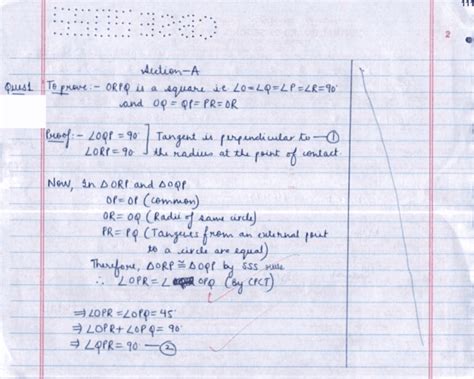 2
Section-A
Ques1 To prove:- ORPQ is a square i.e ∠O=∠Q=∠P=∠R=90°
and OQ = QP=PR=OR
Proof:- ∠OQP = 90° ] Tangent is perpendicular to —①
∠ORP = 90° the radius at the point of contact.
Now, In ΔORP and ΔOQP
OP=OP (common)
OR = OQ (Radii of same circle)
PR = PQ (Tangents from an external point
to a circle are equal)
Therefore, ΔORP ≅ ΔOQP by SSS rule
∴ ∠OPR = ∠ OPQ (by CPCT)
⇒ ∠OPR = ∠OPQ = 45°
⇒ ∠OPR + ∠OPQ = 90°
⇒ ∠QPR = 90 —②